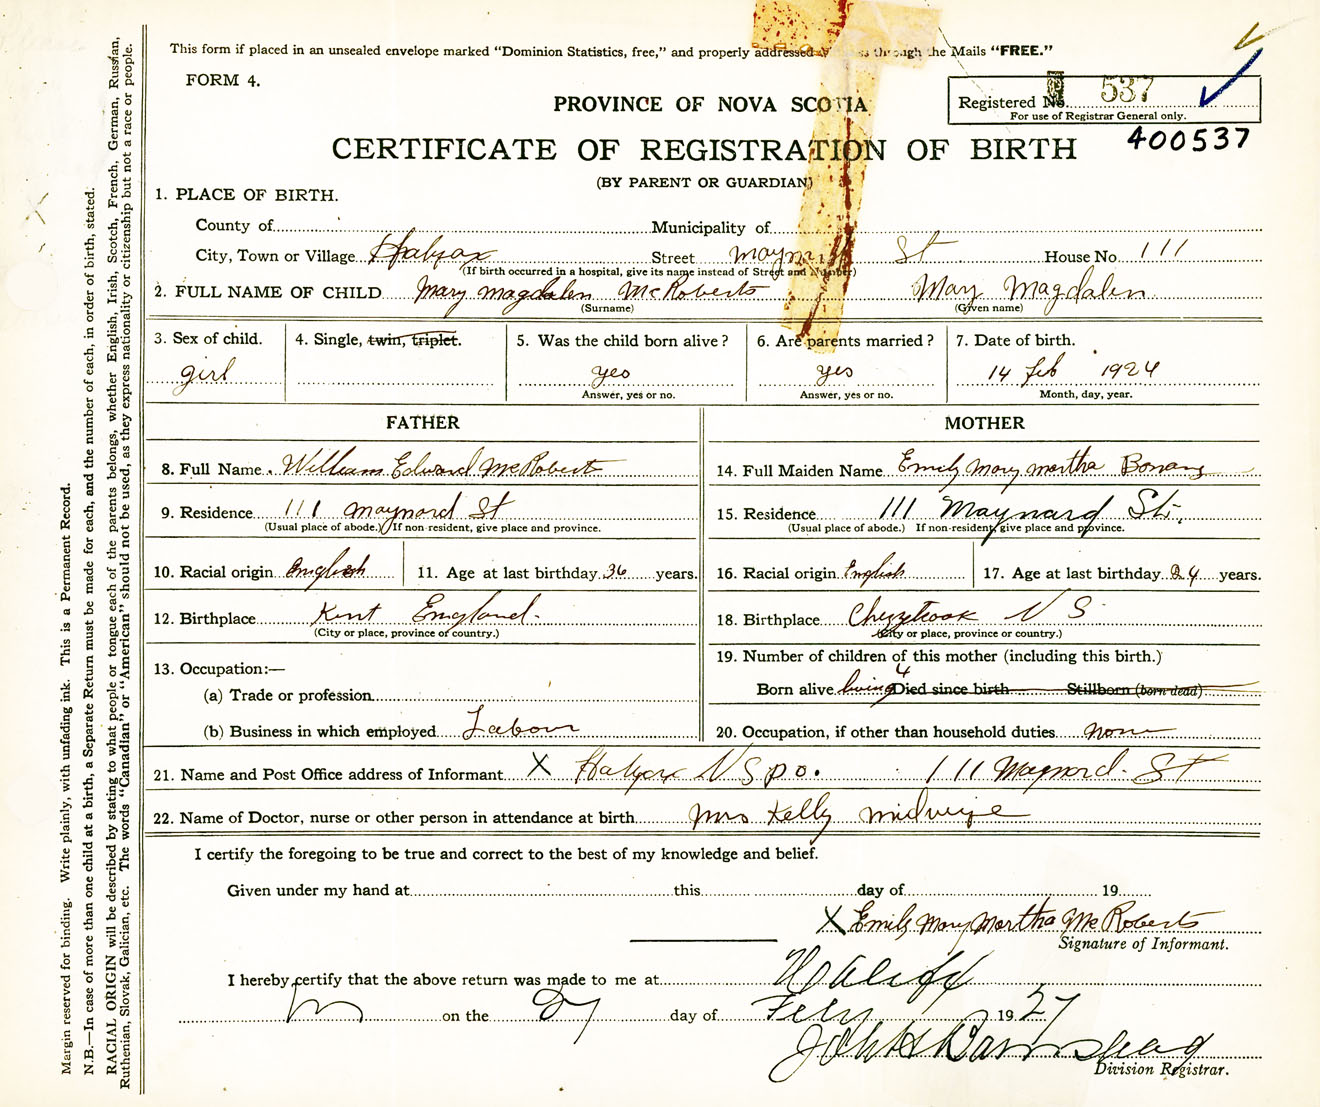 This form if placed in an unsealed envelope marked "Dominion Statistics, free," and properly addressed through the Mails "FREE."
FORM 4.
Registered No. 537
For use of Registrar General only.
PROVINCE OF NOVA SCOTIA
400537
CERTIFICATE OF REGISTRATION OF BIRTH
(BY PARENT OR GUARDIAN)
1. PLACE OF BIRTH.
County of Municipality of
City, Town or Village Halifax Street Maynard St House No 111
(If birth occurred in a hospital, give its name instead of Street and Number)
2. FULL NAME OF CHILD Mary Magdalen McRoberts Mary Magdalen
(Surname) (Given name)
3. Sex of child. 4. Single, twin, triplet. 5. Was the child born alive? 6. Are parents married? 7. Date of birth.
girl yes yes 14 Feb 1924
Answer, yes or no. Answer, yes or no. Month, day, year.
FATHER MOTHER
8. Full Name William Edward McRoberts 14. Full Maiden Name Emily Mary Martha Bonang
9. Residence 111 Maynard St 15. Residence 111 Maynard St.
(Usual place of abode.) If non-resident, give place and province. (Usual place of abode.) If non-resident, give place and province.
10. Racial origin English 11. Age at last birthday 36 years. 16. Racial origin English 17. Age at last birthday 24 years.
12. Birthplace Kent England. 18. Birthplace Chezzetcook N S
(City or place, province or country.) (City or place, province or country.)
13. Occupation:— 19. Number of children of this mother (including this birth.)
(a) Trade or profession Born alive living 4 Died since birth Stillborn (born dead)
(b) Business in which employed Labour 20. Occupation, if other than household duties none
21. Name and Post Office address of Informant X Halifax N S P.O. 111 Maynard St
22. Name of Doctor, nurse or other person in attendance at birth Mrs Kelly midwife
I certify the foregoing to be true and correct to the best of my knowledge and belief.
Given under my hand at this day of 19
X Emily Mary Martha McRoberts
Signature of Informant.
I hereby certify that the above return was made to me at Halifax
on the 27 day of Feby 1927
Division Registrar.
Margin reserved for binding. Write plainly, with unfading ink. This is a Permanent Record.
N.B.—In case of more than one child at a birth, a Separate Return must be made for each, and the number of each, in order of birth, stated.
RACIAL ORIGIN will be described by stating to what people or tongue each of the parents belongs, whether English, Irish, Scotch, French, German, Russian,
Ruthenian, Slovak, Galician, etc. The words "Canadian" or "American" should not be used, as they express nationality or citizenship but not a race or people.